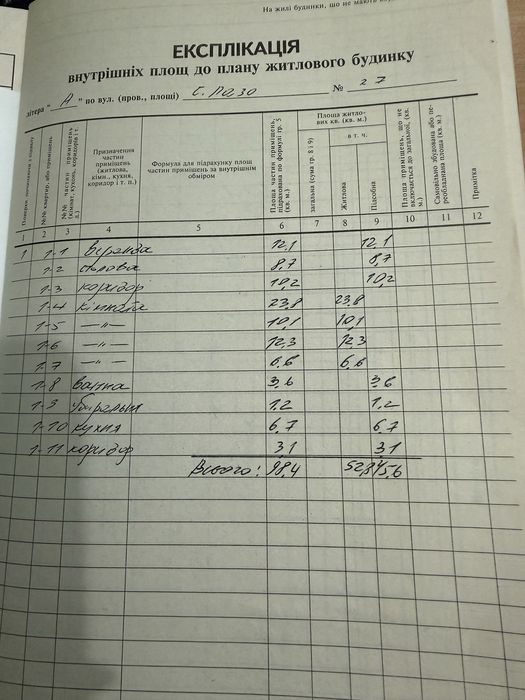 На жилі будинки, що не мають
ЕКСПЛІКАЦІЯ
внутрішніх площ до плану житлового будинку
літера " А " по вул. (пров., площі) С. Лазо № 27
Поверхи, починаючи з підвалу
№№ квартир, або приміщень
№№ частин приміщень (кімнат, кухонь, коридорів і т. д.)
Призначення частин приміщень (житлова, кімн., кухня, коридор і т. п.)
Формула для підрахунку площ частин приміщень за внутрішнім обміром
Площа частин приміщень, підрахована по формулі гр. 5 (кв. м.)
Площа житлових кв. (кв. м.)
загальна (сума гр. 8 і 9)
в т. ч.
Житлова
Підсобна
Площа приміщень, що не включається до загальної, (кв. м.)
Самовільно збудована або переобладнана площа (кв. м.)
Примітка
1 2 3 4 5 6 7 8 9 10 11 12
1 1-1 веранда 12,1 12,1
1-2 столова 8,7 8,7
1-3 коридор 10,2 10,2
1-4 кімната 23,8 23,8
1-5 —"— 10,1 10,1
1-6 —"— 12,3 12,3
1-7 —"— 6,6 6,6
1-8 ванна 3,6 3,6
1-9 1,2 1,2
1-10 кухня 6,7 6,7
1-11 коридор 3,1 3,1
Всього: 98,4 52,8 45,6